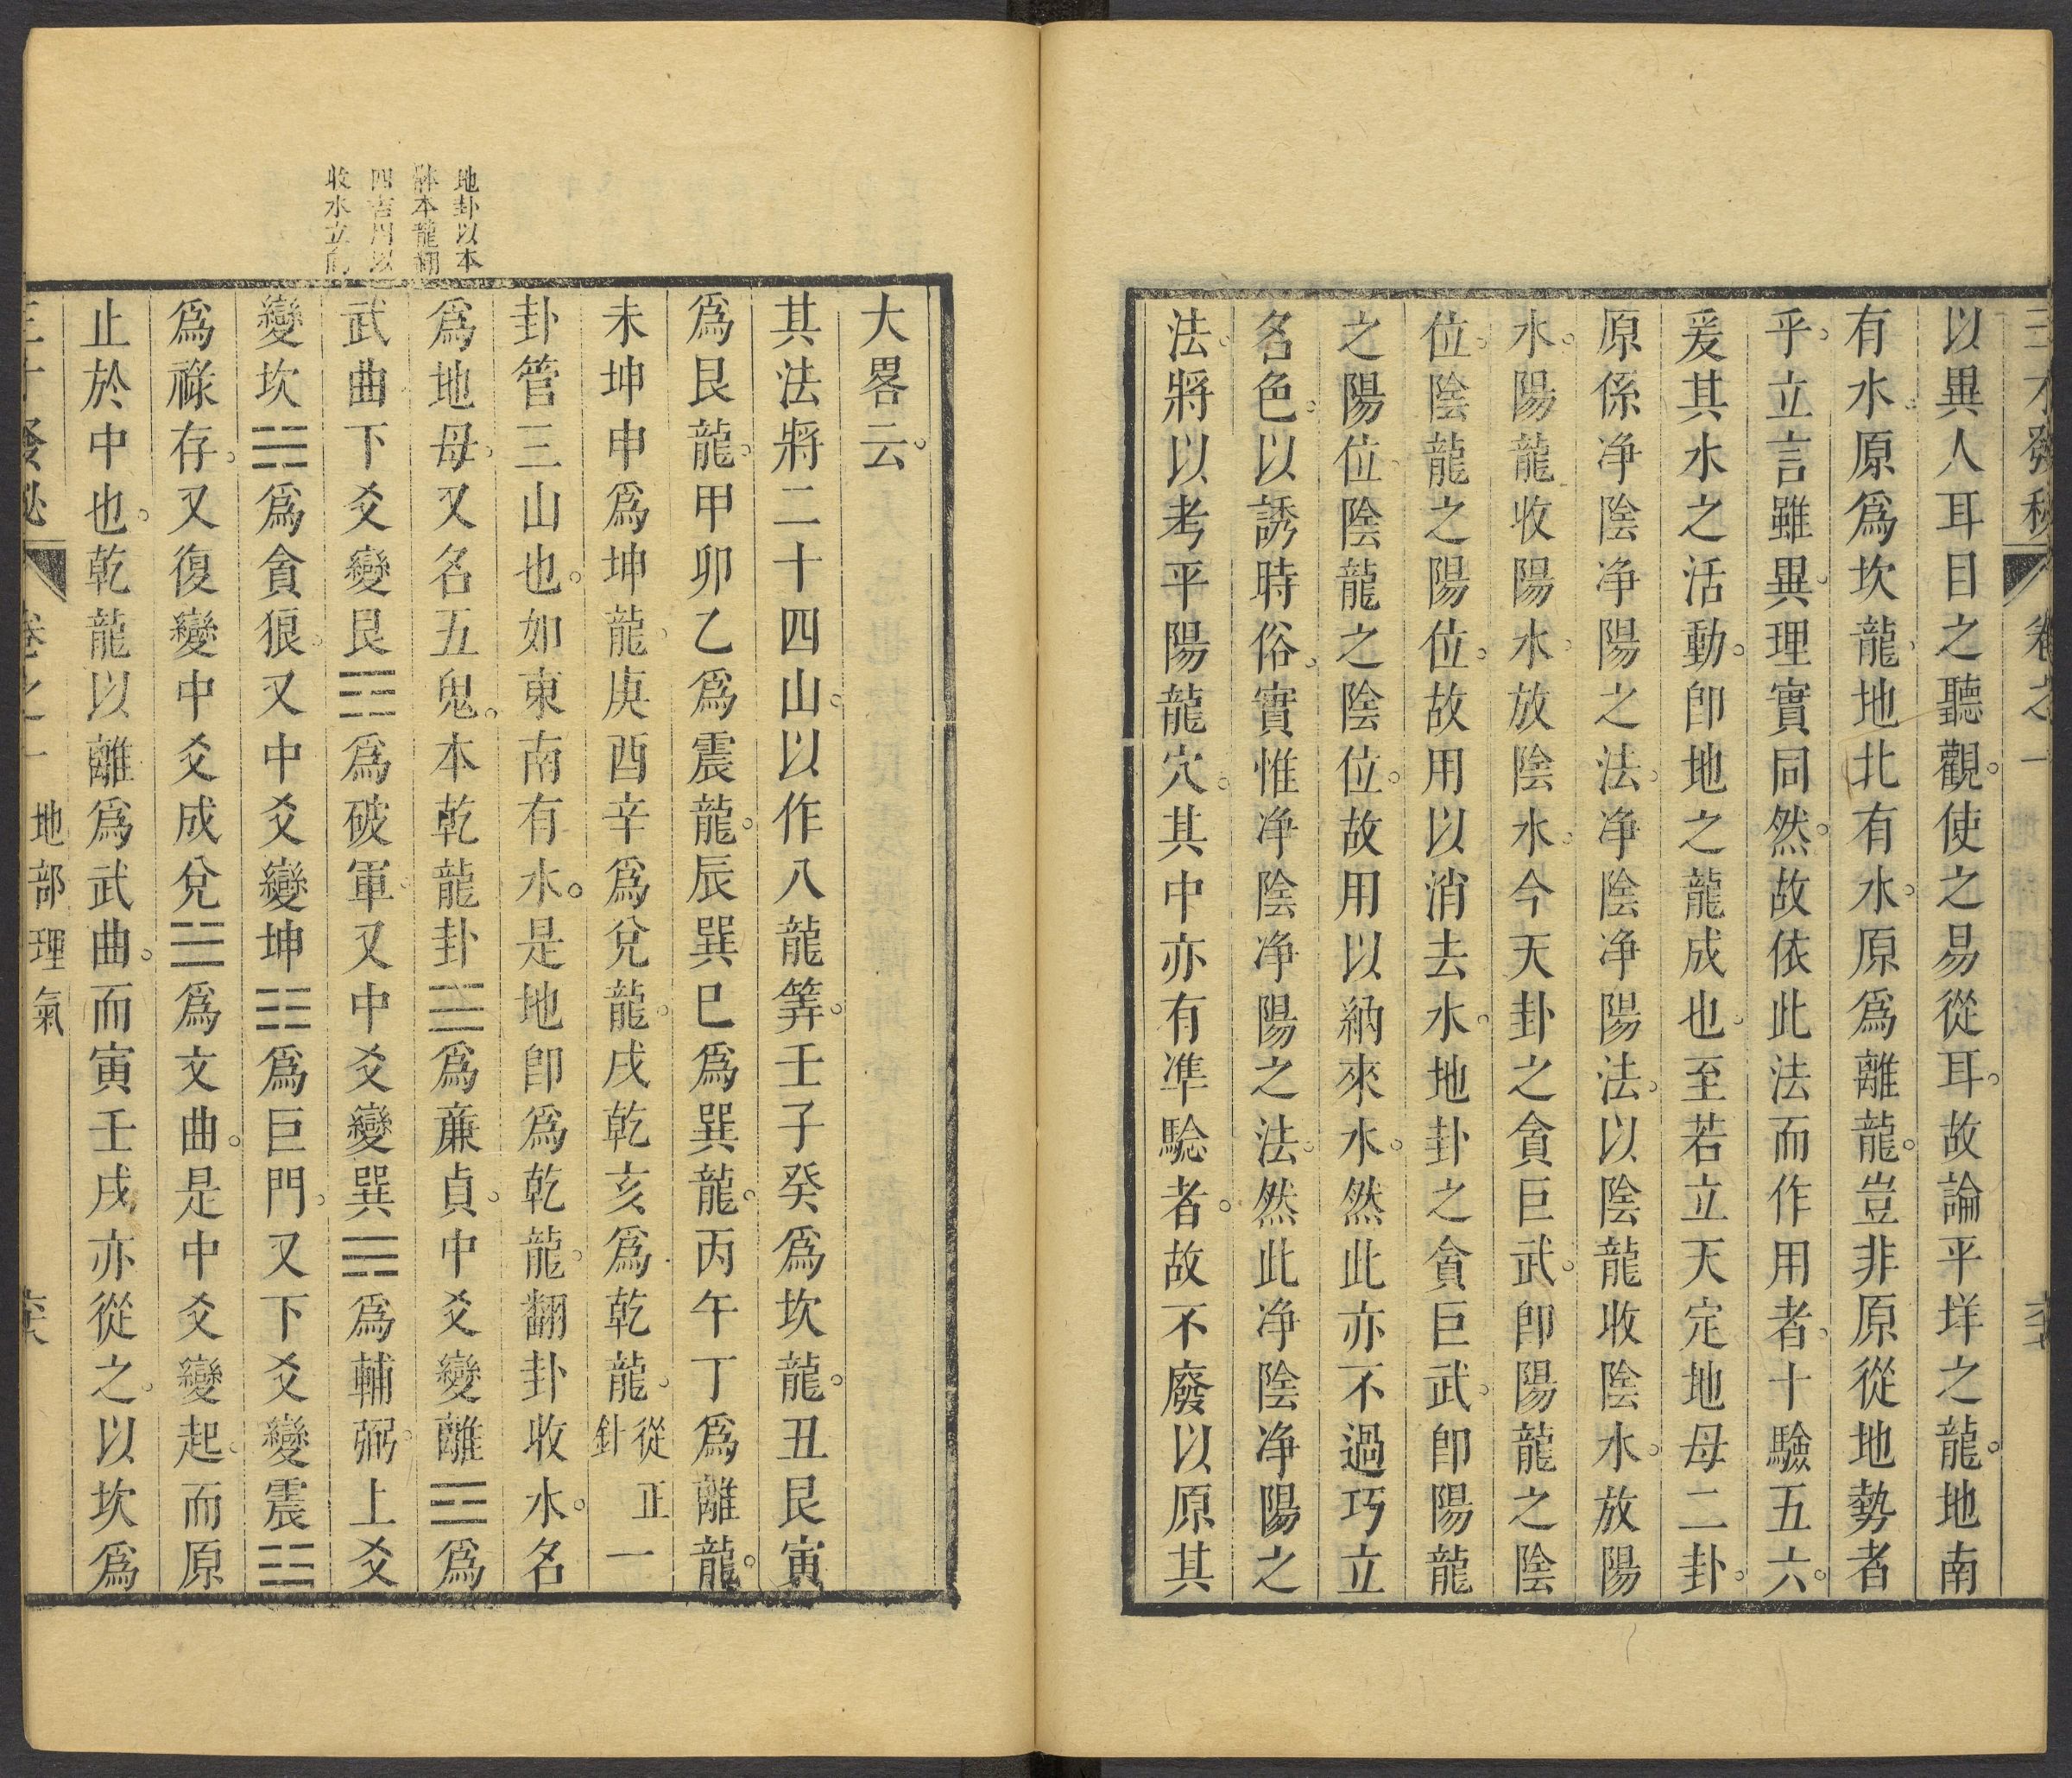 三才發秘 卷之一
以異人耳目之聽觀。使之易從耳。故論平垟之龍。地南
有水。原爲坎龍。地北有水。原爲離龍。豈非原從地勢者
乎。立言雖異。理實同然。故依此法而作用者。十驗五六。
爰其水之活動。卽地之龍成也。至若立天定地母二卦。
原係净陰净陽之法。净陰净陽法。以陰龍收陰水。放陽
水。陽龍收陽水。放陰水。今天卦之貪巨武。卽陽龍之陰
位。陰龍之陽位。故用以消去水。地卦之貪巨武。卽陽龍
之陽位。陰龍之陰位。故用以納來水。然此亦不過巧立
名色。以誘時俗。實惟净陰净陽之法。然此净陰净陽之
法。將以考平陽龍穴。其中亦有凖騐者。故不廢以原其
大畧云。
其法將二十四山。以作八龍筭。壬子癸爲坎龍。丑艮寅
爲艮龍。甲卯乙爲震龍。辰巽巳爲巽龍。丙午丁爲離龍。
未坤申爲坤龍。庚酉辛爲兌龍。戌乾亥爲乾龍。從正針一
卦管三山也。如東南有水。是地卽爲乾龍。翻卦收水。名
爲地母。又名五鬼。本乾龍卦☰爲亷貞。中爻變離☲爲
武曲。下爻變艮☶爲破軍。又中爻變巽☴爲輔弼。上爻
變坎☵爲貪狼。又中爻變坤☷爲巨門。又下爻變震☳
爲祿存。又復變中爻成兌☱爲文曲。是中爻變起。而原
止於中也。乾龍以離爲武曲。而寅壬戌亦從之。以坎爲
地卦以本
龍翻
四吉用以
收水立向
三才發秘 卷之一 地部理氣